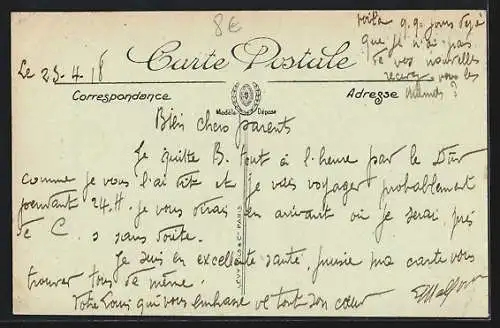 8€
voilà q.q. jours déjà
que je n'ai pas
de vos nouvelles
recevez vous les
miennes ?
Le 23-4-18
Carte Postale
Correspondance
Adresse
Modèle Déposé
Bien chers parents
Je quitte B. tout à l'heure par le
comme je vous l'ai dit et je vais voyager probablement
pendant 24.H. je vous dirai en arrivant où je serai, près
de C. s sans doute.
Je suis en excellente santé, puisse ma carte vous
trouver tous de même.
Votre Louis qui vous embrasse de tout son cœur
LEVY FILS & Cie PARIS